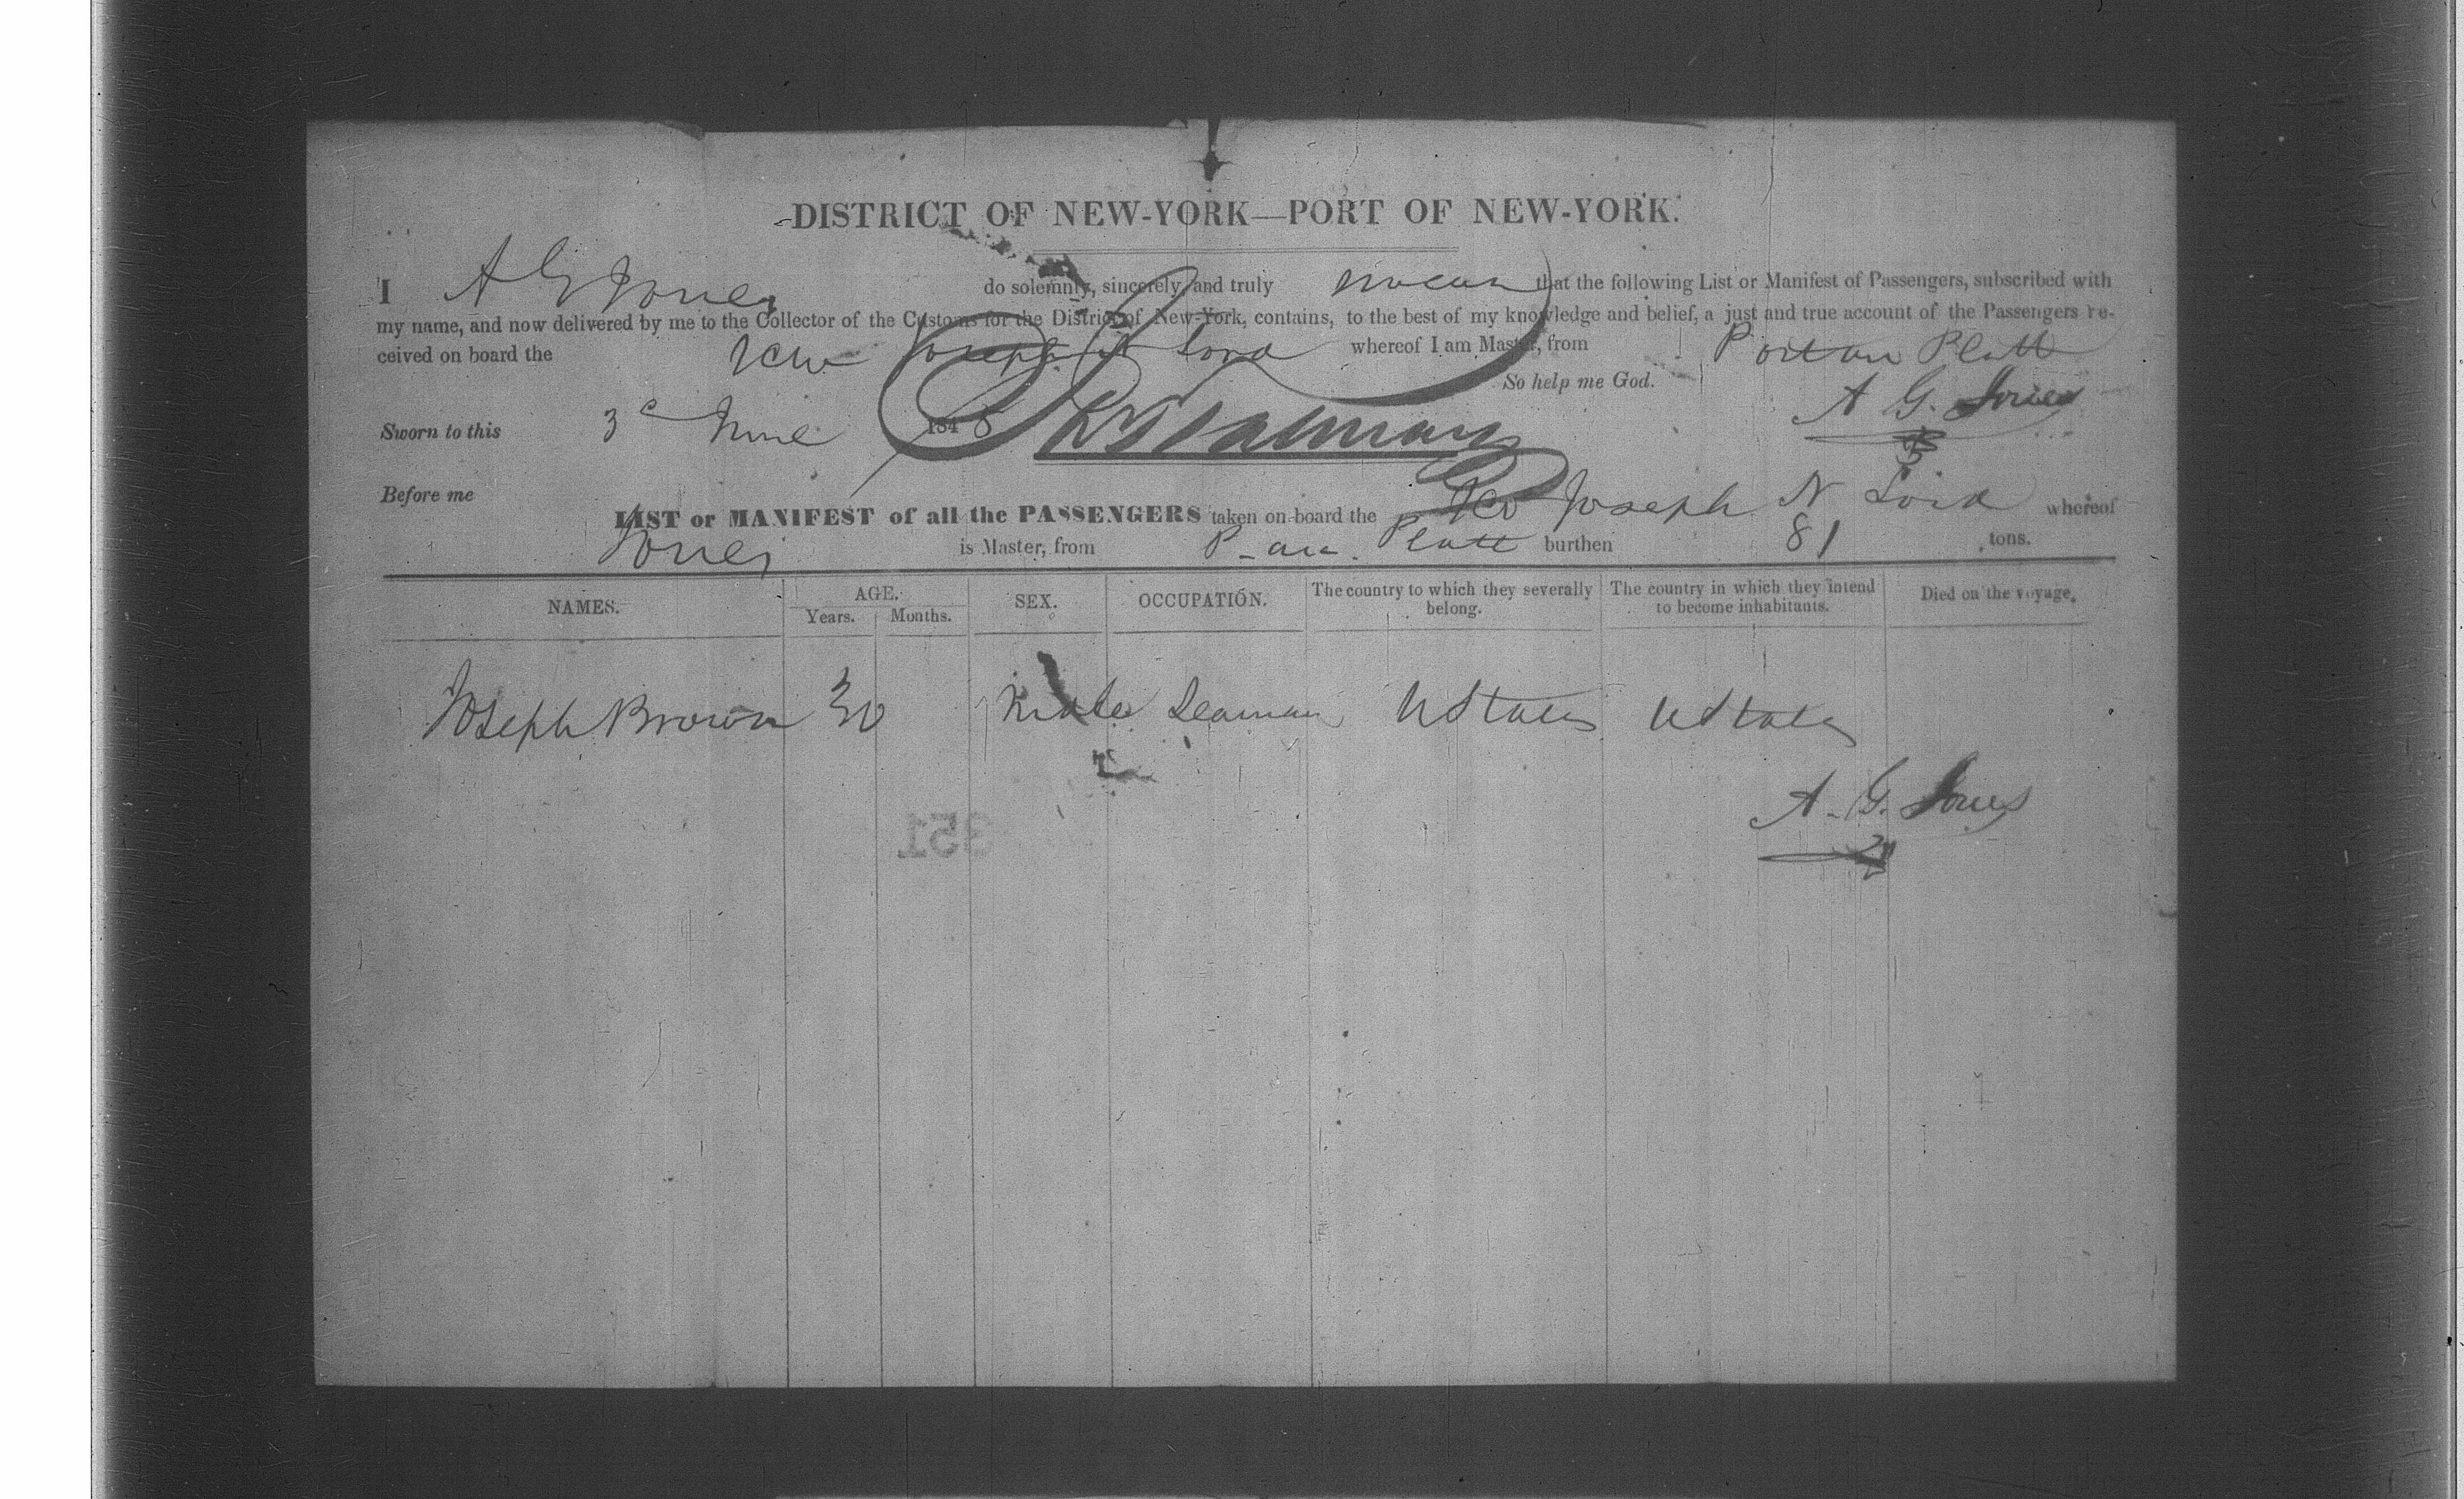 DISTRICT OF NEW-YORK—PORT OF NEW-YORK.
I A G Jones do solemnly, sincerely, and truly swear that the following List or Manifest of Passengers, subscribed with
my name, and now delivered by me to the Collector of the Customs for the District of New-York, contains, to the best of my knowledge and belief, a just and true account of the Passengers re-
ceived on board the Joseph N Lord whereof I am Master, from Platt
So help me God.
A G. Jones
Sworn to this 3 June 1848
Before me
LIST or MANIFEST of all the PASSENGERS taken on board the Joseph N Lord whereof
Jones is Master, from Platt burthen 81 tons.
NAMES. AGE. Years. Months. SEX. OCCUPATION. The country to which they severally belong. The country in which they intend to become inhabitants. Died on the voyage.
Joseph Brown 30 Male Seaman U States U States
A. G. Jones
351